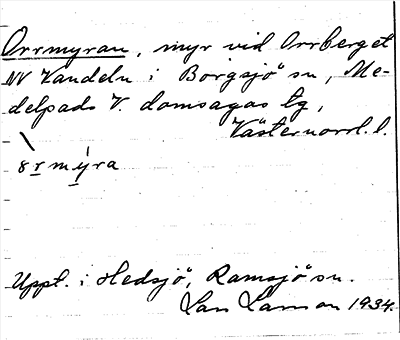 Orrmyran, myr vid Orrberget
NV Vandeln i Borgsjö sn, Me-
delpads V. domsagas tg,
Västernorrl. l.
ʽ8rmýra
Uppt. i Hedsjö, Ramsjö sn.
1934.